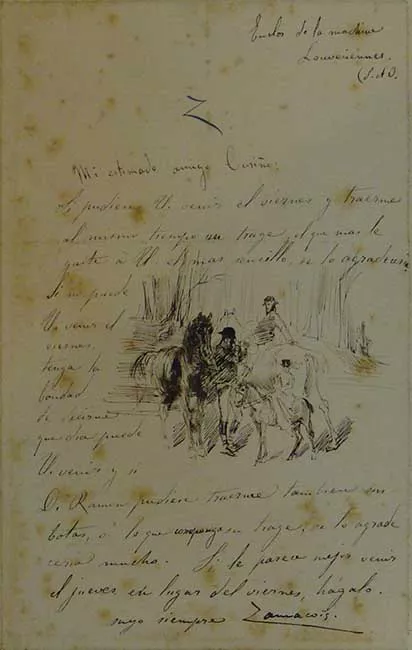 Enclos de la machine
Louveciennes.
(S.&O.
Z
Mi estimado amigo Cusine:
Si pudiera V. venir el viernes y traerme
al mismo tiempo su trage, el que mas le
guste a V. el mas sencillo, se lo agradecería
Si no puede
V. venir el
viernes,
tenga la
bondad
de decirme
que dia puede
V. venir y si
D. Ramon pudiese traerme tambien sus
botas, ó lo que componga su trage, se lo agrade
ceria mucho. Si le parece mejor venir
el jueves en lugar del viernes, hágalo.
suyo siempre Zamacois.